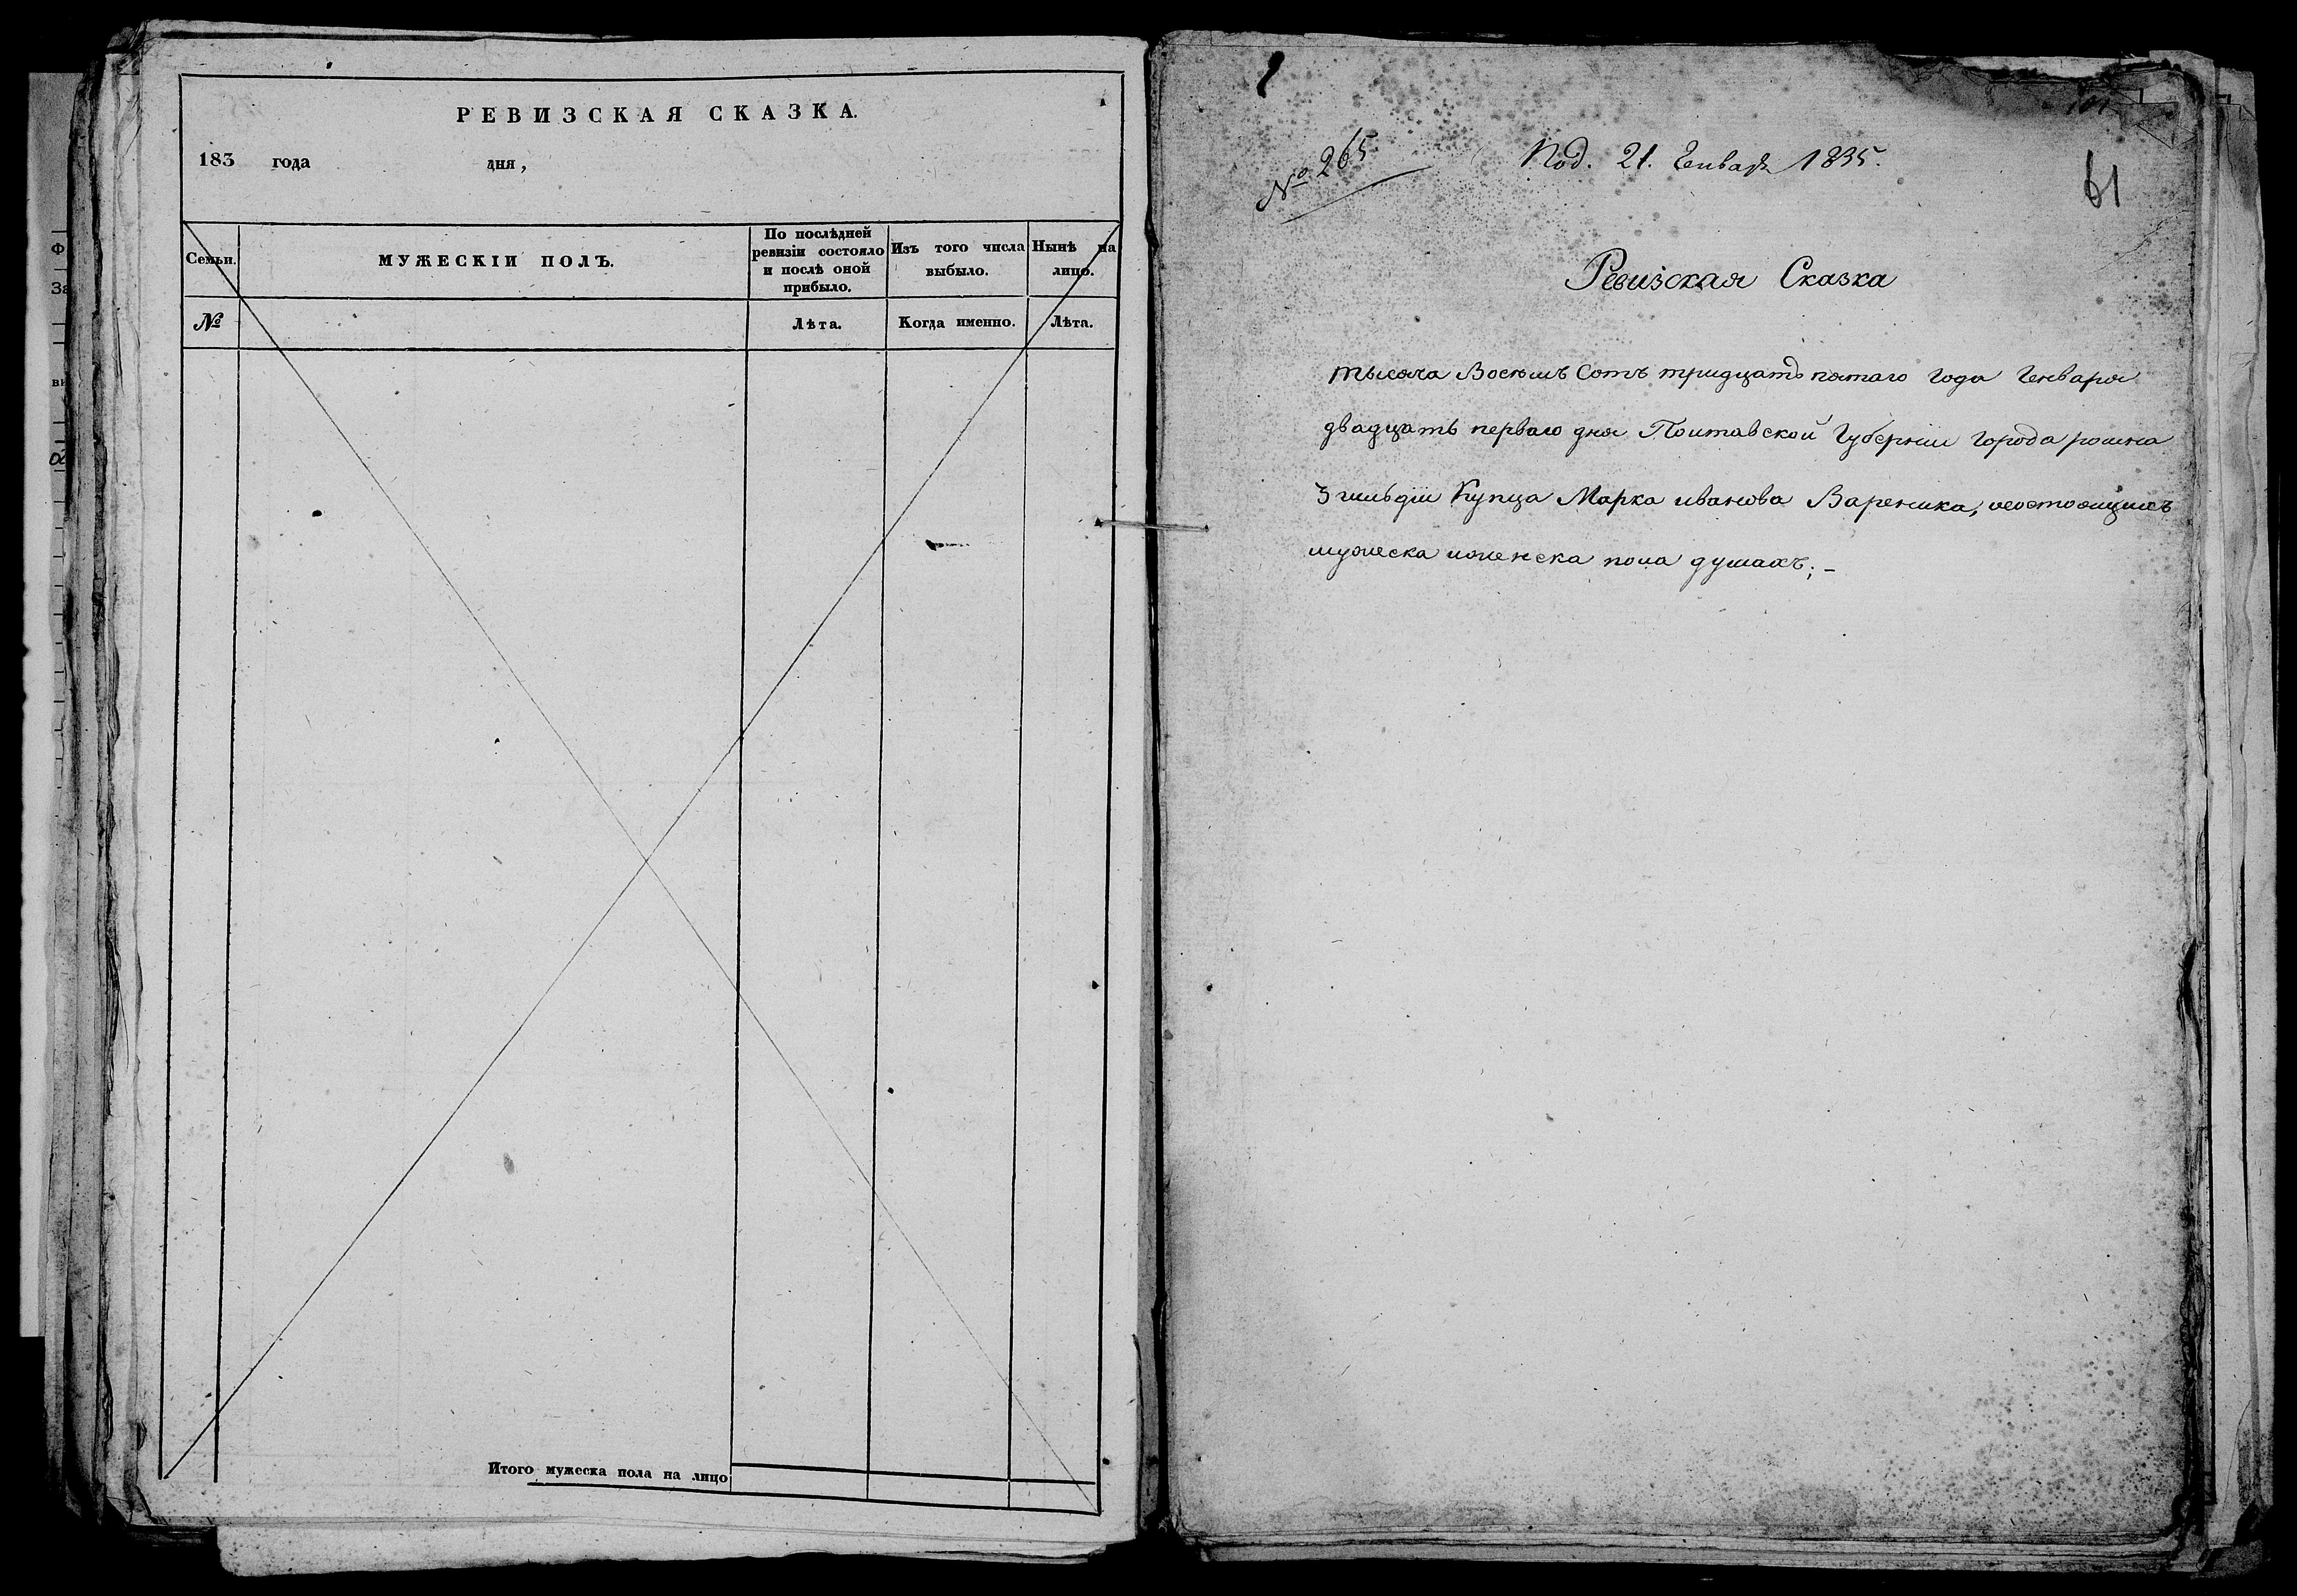 РЕВИЗСКАЯ СКАЗКА.
183 года дня,
Семьи.
МУЖЕСКІИ ПОЛЪ.
По послѣдней
ревизіи состояло
и послѣ оной
прибыло.
Изъ того числа
выбыло.
Нынѣ на
лицо.
№
Лѣта.
Когда именно.
Лѣта.
Итого мужеска пола на лицо
№ 265
Под. 21. Генваря 1835.
61
Ревизская Сказка
тысяча Восемь Сотъ тридцать пятаго года Генваря
двадцать перваго дня Полтавской Губерніи города ромна
3 гильдіи Купца Марка иванова Вареника, осостоящихъ
мужеска иженска пола душахъ; -